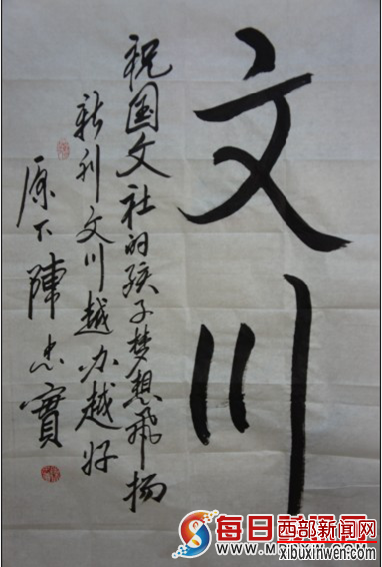 文川
祝国文社的孩子梦想飛扬
新刊文川越办越好
原下陳忠實
每日
西部新闻网
xibuxinwen.com